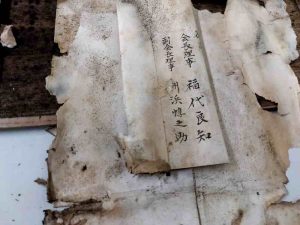 会長理事 代 知
副会長理事 浜 之助